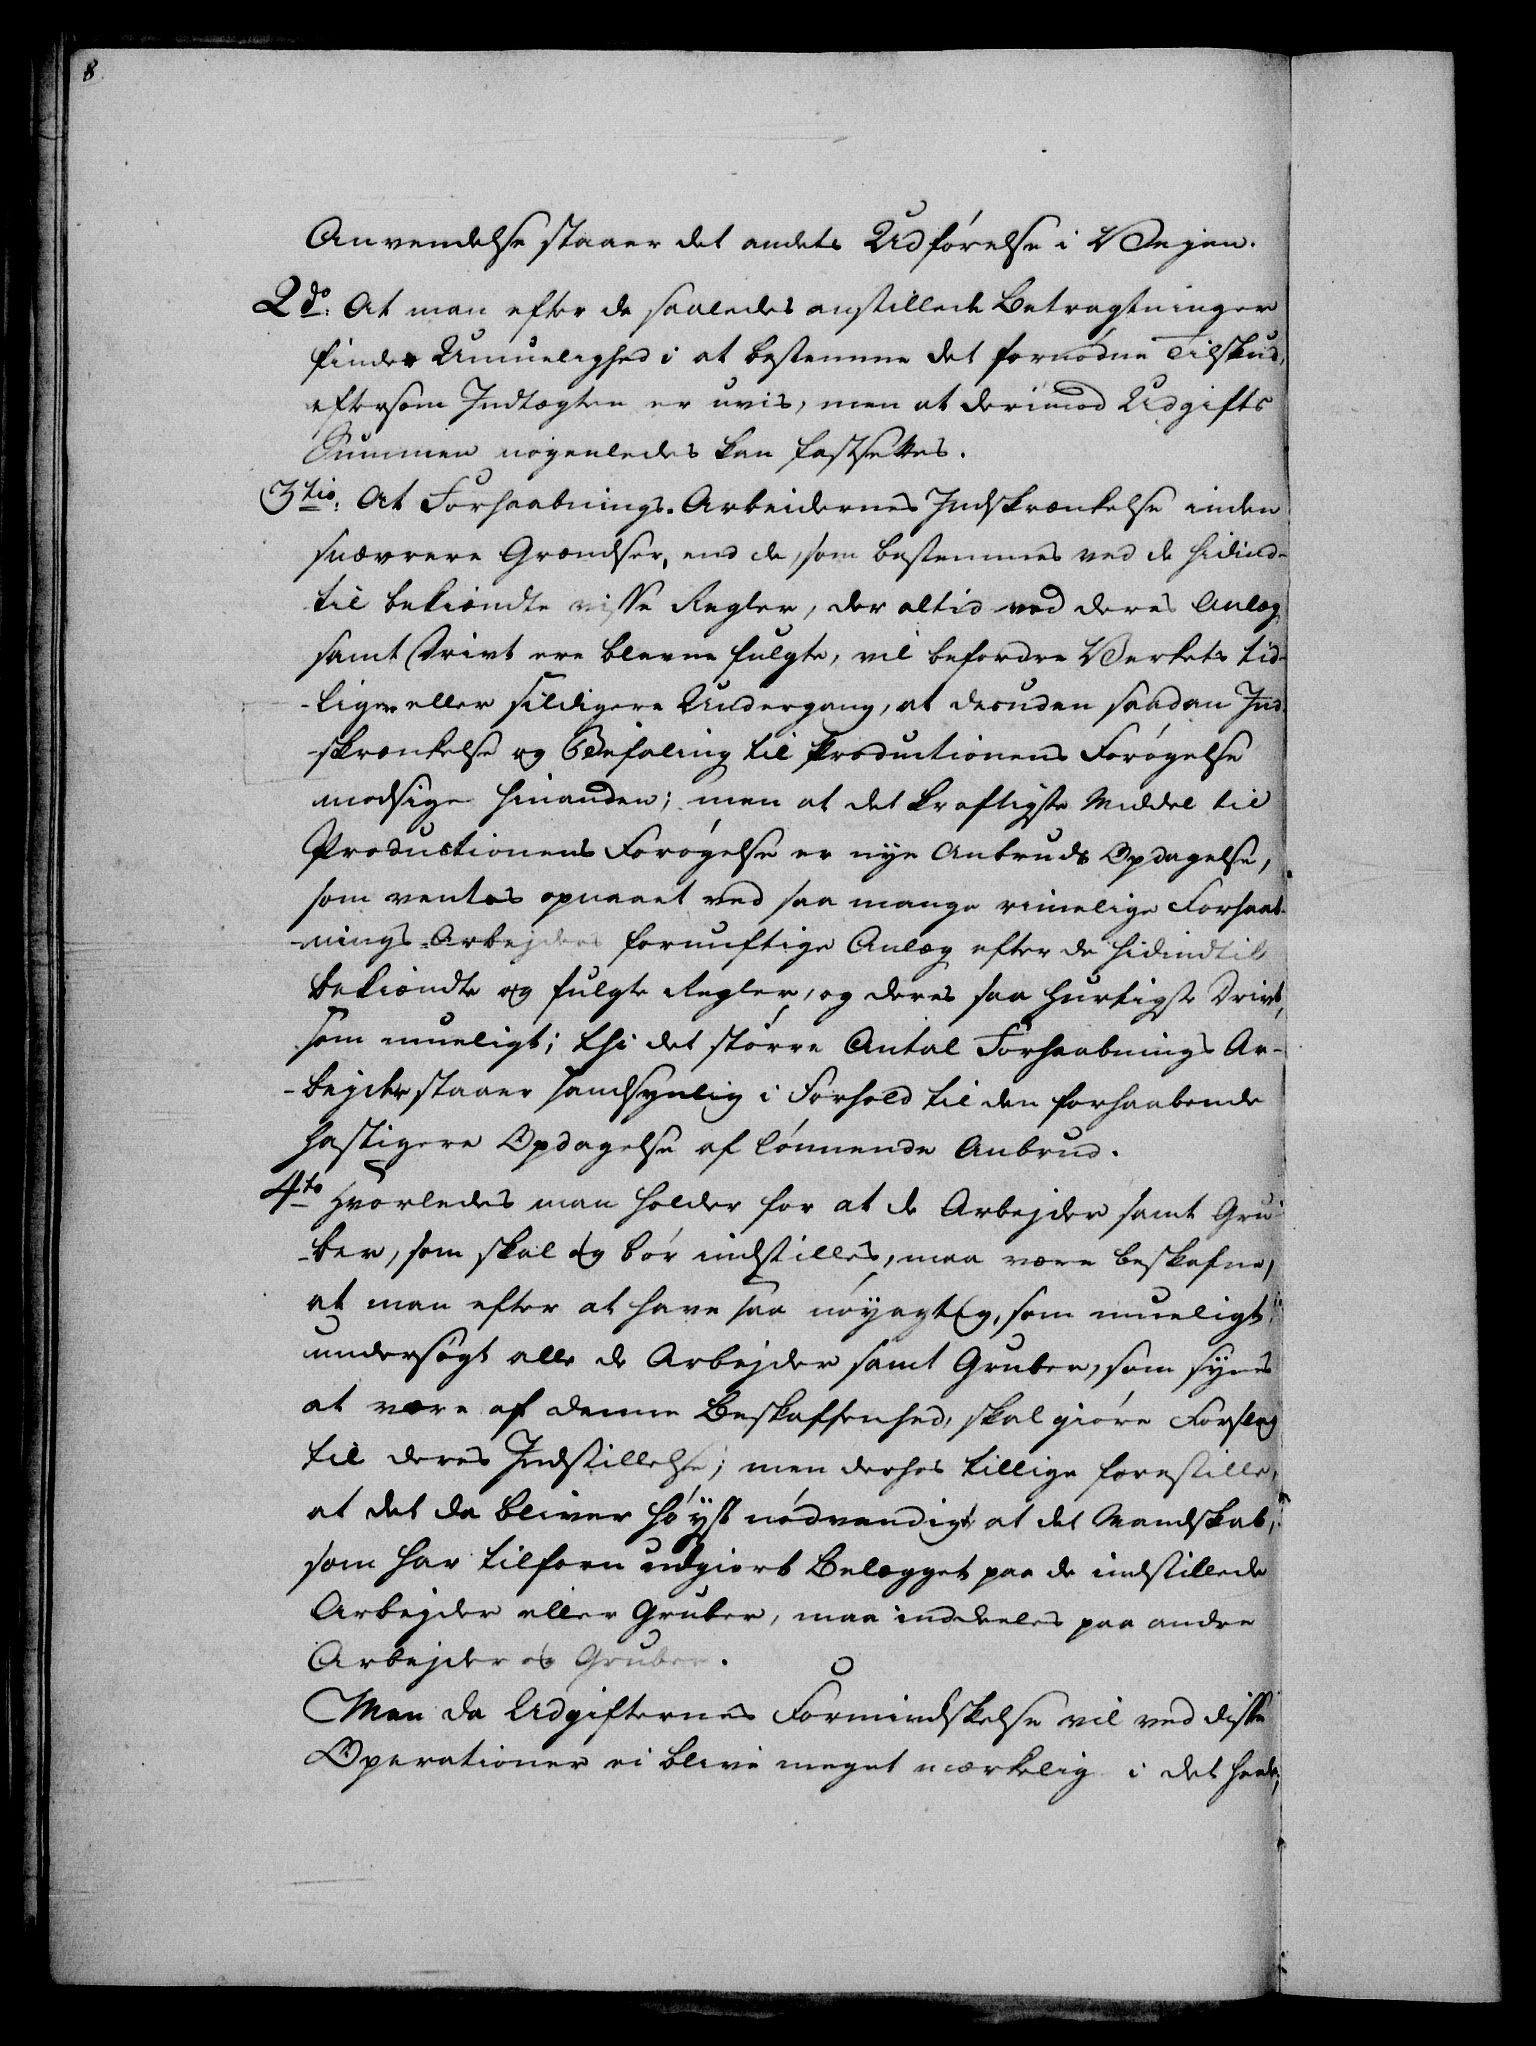 8
Anvendelse staaer det andets Udførelse i Veyen.
2do: At man efter de saaledes anstillede Betragtninger
finder Umuelighed i at bestemme det fornødne Tilskud,
eftersom Indtægten er uvis, men at derimod Udgifts
Summen nogenledes kan fastsettes.
3tio: At Forhaabnings-Arbeidernes Indskrænkelse inden
snævrere Grændser, end de, som bestemmes ved de hidind-
til bekiændte visse Regler, der altid ved deres Anlæg
samt Drivt ere blevne fulgte, vil befordre Verkets tid-
-ligere eller sildigere Undergang, at desuden saadan Ind-
-skrænkelse og Befaling til Productionens Forøgelse
modsige hinanden; men at det kraftigste Middel til
Productionens Forøgelse er nye Anbruds Opdagelse,
som ventes opnaaet ved saa mange rimelige Forhaab-
-nings-Arbejders fornuftige Anlæg efter de hidindtil
bekiændte og fulgte Regler, og deres saa hurtigste Drivt,
som mueligt; thi det større Antal Forhaabnings Ar-
-bejder staaer sandsynlig i Forhold til den forhaabende
hastigere Opdagelse af lønnende Anbrud.
4to Hvorledes man holder for at de Arbejder samt Gru-
-ber, som skal og bør indstilles, maa være beskafne,
at man efter at have saa nøyagtig, som mueligt
undersøgt alle de Arbejder samt Gruber, som synes
at være af denne Beskaffenhed, skal giøre Forslag
til deres Indstillelse; men derhos tillige forestille,
at det da bliver høyst nødvendigt at det Mandskab,
som har tilforn udgiort Belægget paa de indstillede
Arbejder eller Gruber, maa inddeeles paa andre
Arbejder og Gruber.
Men da Udgifternes Formindskelse vil ved disse
Operationer ei blive meget mærkelig i det heele,